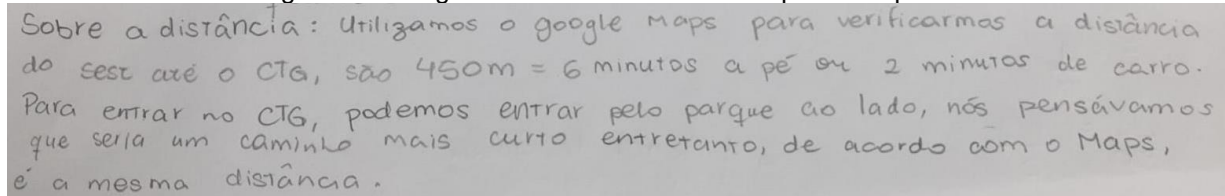 Sobre a distância: Utilizamos o google Maps para verificarmos a distância
do sesc até o CTG, são 450m = 6 minutos a pé ou 2 minutos de carro.
Para entrar no CTG, podemos entrar pelo parque ao lado, nós pensávamos
que seria um caminho mais curto entretanto, de acordo com o Maps,
é a mesma distância.